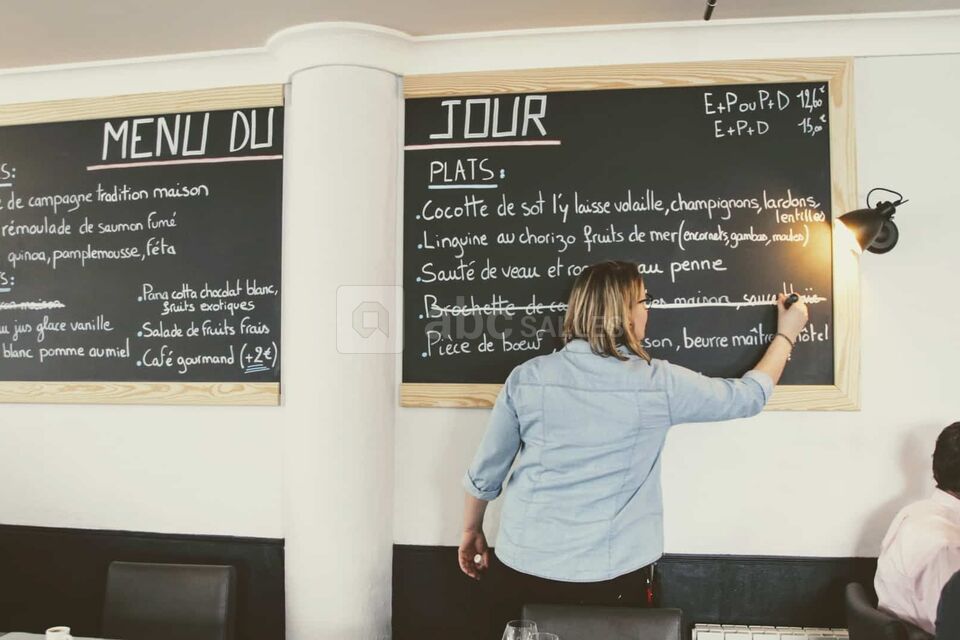 MENU DU
S:
de campagne tradition maison
rémoulade de saumon fumé
quinoa, pamplemousse, féta
S:
maison
jus glace vanille
blanc pomme au miel
.Pana cotta chocolat blanc,
fruits exotiques
.Salade de fruits frais
.Café gourmand (+2€)
JOUR
E+P ou P+D 12,60€
E+P+D 15,00€
PLATS:
.Cocotte de sot l'y laisse volaille, champignons, lardons,
lentilles
.Linguine au chorizo fruits de mer (encornets, gambas, moules)
.Sauté de veau et au penne
.Brochette de maison,
.Pièce de boeuf maison, beurre maître hôtel
abc
SALLES